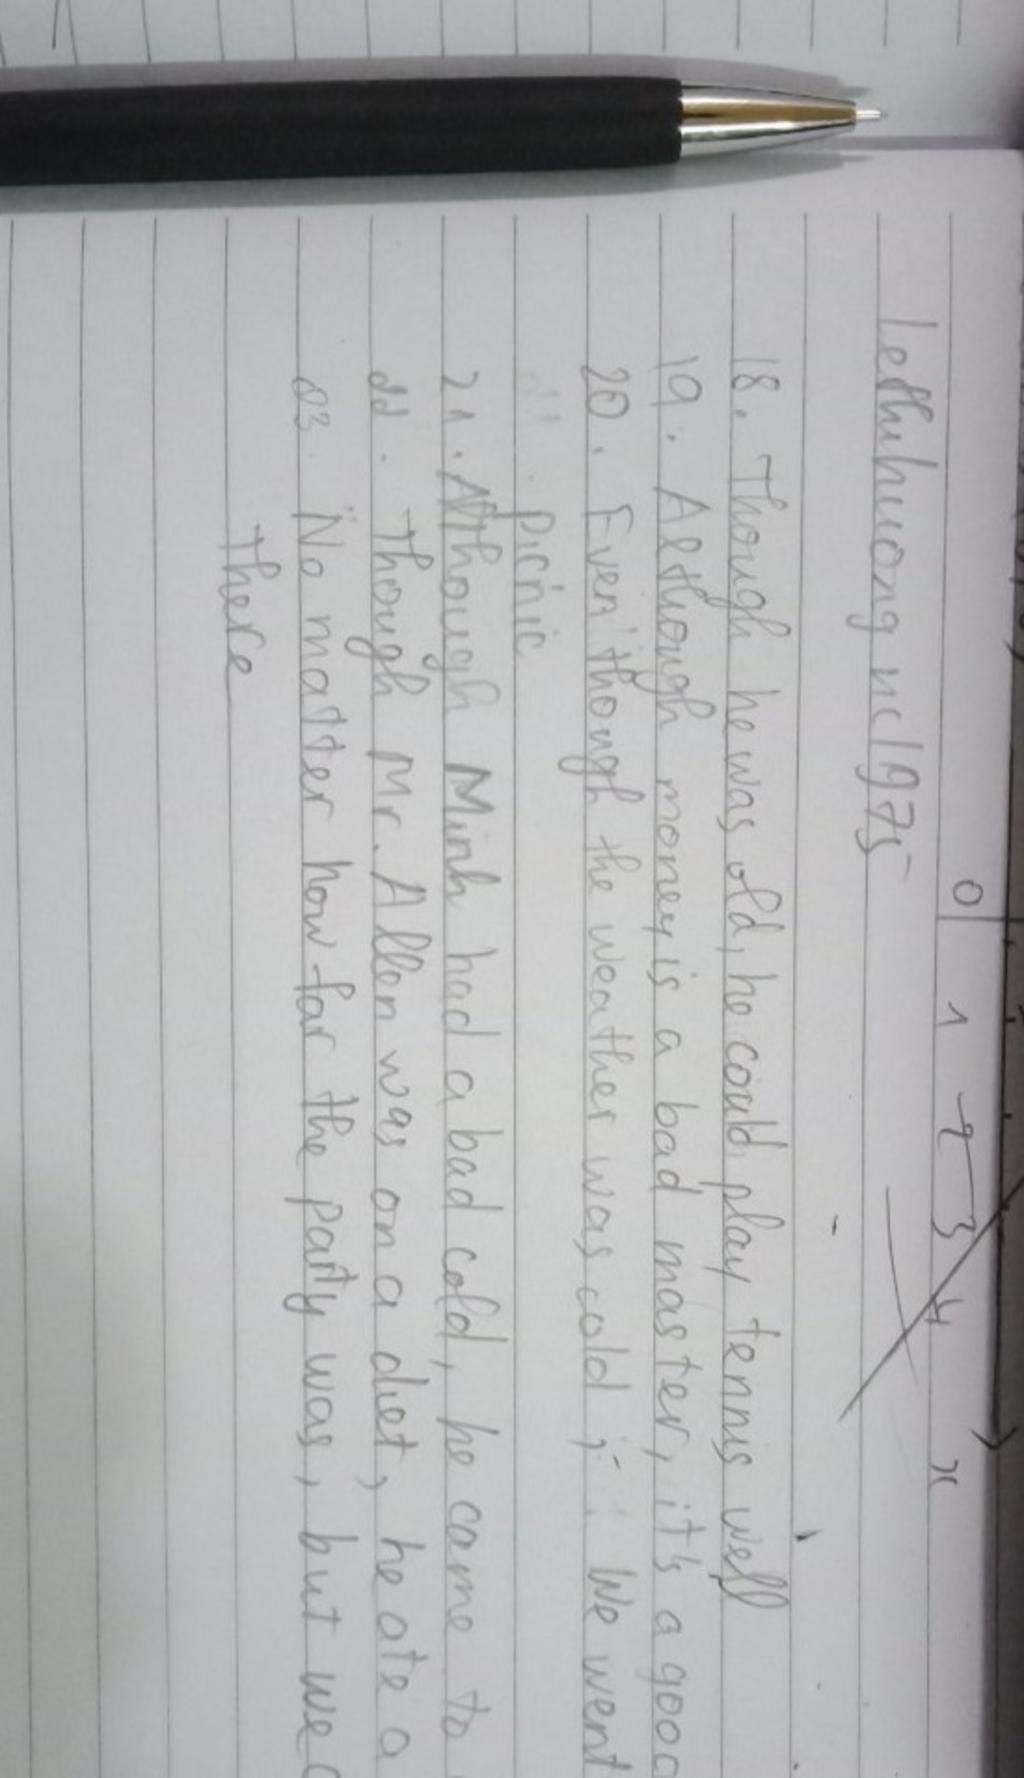 0 1 2 3 4 x
Lethuhuongnc1975
18. Though he was old, he could play tennis well
19. Although money is a bad master, it's a good
20. Even though the weather was cold, We went
picnic
21. Although Minh had a bad cold, he came to
22. Though Mr. Allen was on a diet, he ate a
23 No matter how far the party was, but we
There